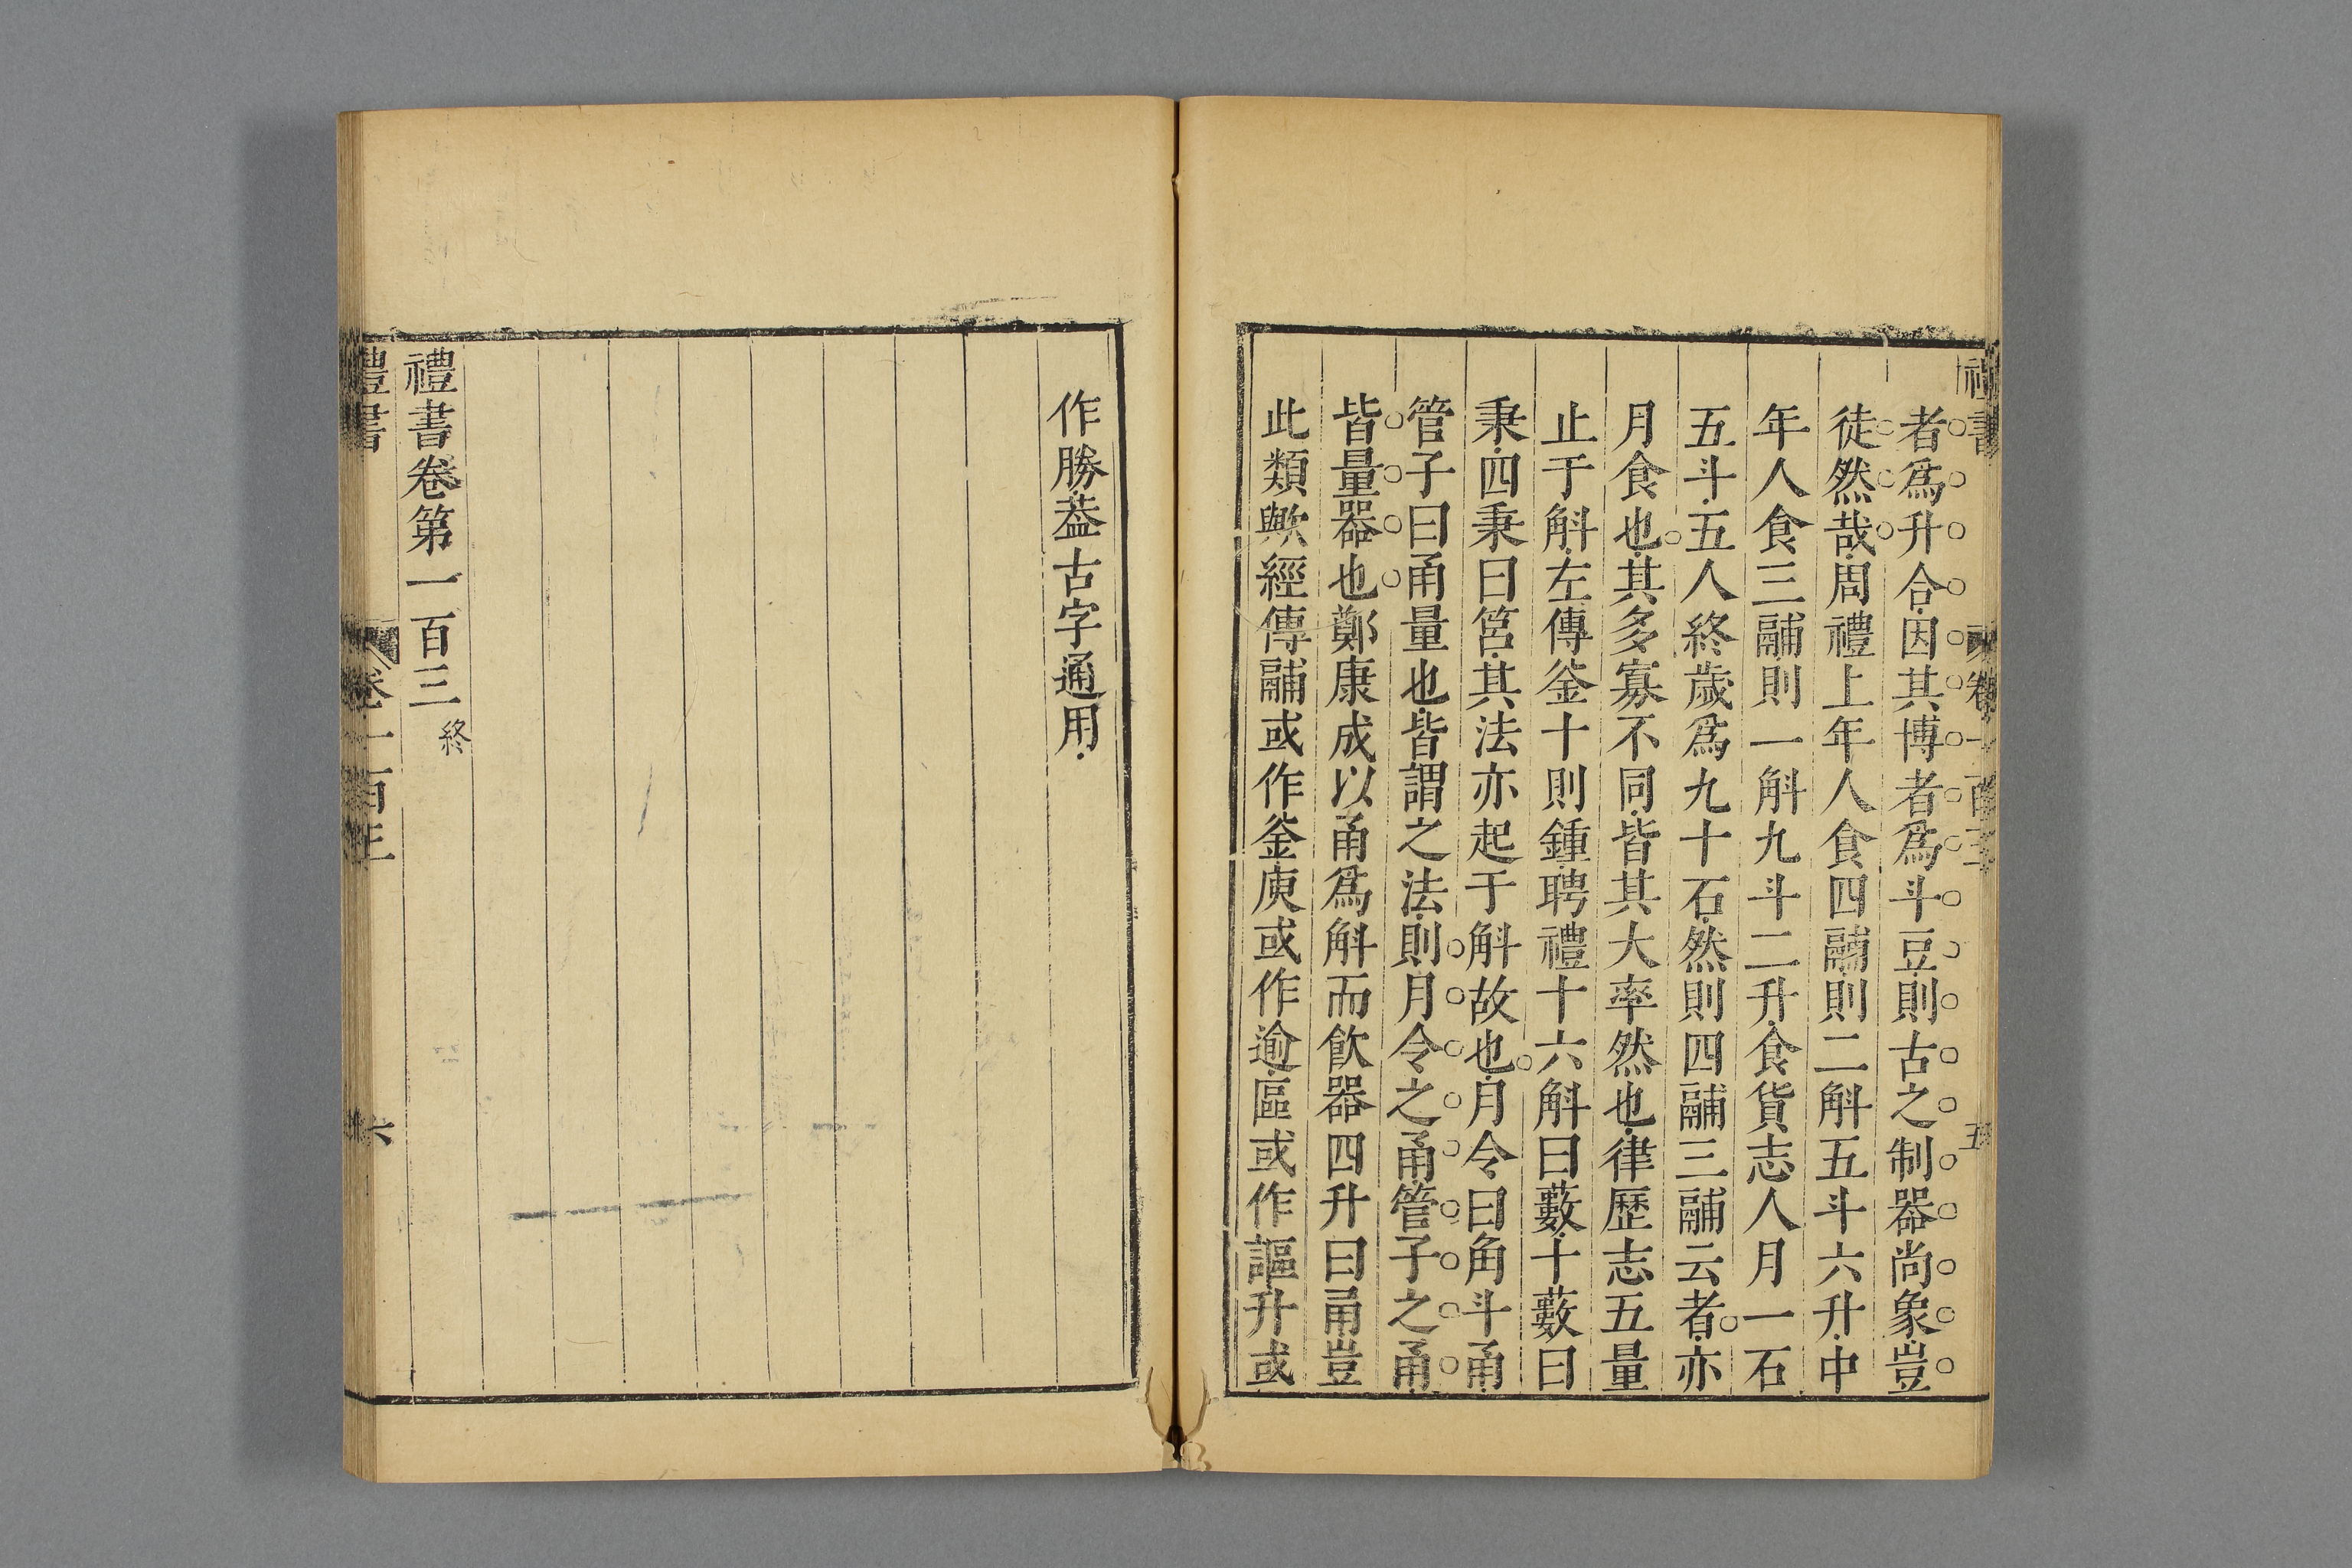 禮書 卷一百三 五
者爲升合因其博者爲斗豆則古之制器尚象豈
徒然哉周禮上年人食四鬴則二斛五斗六升中
年人食三鬴則一斛九斗二升食貨志人月一石
五斗五人終歲爲九十石然則四鬴三鬴云者亦
月食也其多寡不同皆其大率然也律歷志五量
止于斛左傳釜十則鍾聘禮十六斛曰藪十藪曰
秉四秉曰筥其法亦起于斛故也月令曰角斗甬
管子曰甬量也皆謂之法則月令之甬管子之甬
皆量器也鄭康成以甬爲斛而飲器四升曰甬豈
此類歟經傳鬴或作釜庾或作逾區或作謳升或
作勝葢古字通用
禮書卷第一百三 終
禮書 卷一百三 六